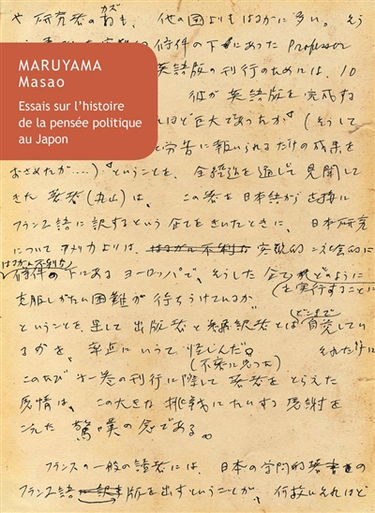 や研究者の数も、他の国よりもはるかに多い。そう
条件の下にあった Professor
MARUYAMA
Masao
Essais sur l'histoire
de la pensée politique
au Japon
英語版の刊行のためには、10
彼が英語版を完成する
ほど巨大であったか(そして
労苦に報いられるだけの成果を
おさめたか……)ということを、全経過を通じて見聞して
きた著者(丸山)は、この書を日本語から直接に
フランス語に訳するという企てをきいたときに、日本研究
についてアメリカよりは、実際的
条件の下にあるヨーロッパで、そうした企て
(を実行することに)
克服しがたい困難が待ちうけているか
ということを果して出版者と翻訳者とは
どこまで
自覚してい
るかを、率直にいって
(不審に思った)
それだけに
このたび
の刊行に際して著者をとらえた
感情は、この大きな挑戦にたいする感謝を
こえた驚嘆の念である。
フランスの一般の読者には、日本の学問的著書の
フランス語版を出すということが、何故いえれほど